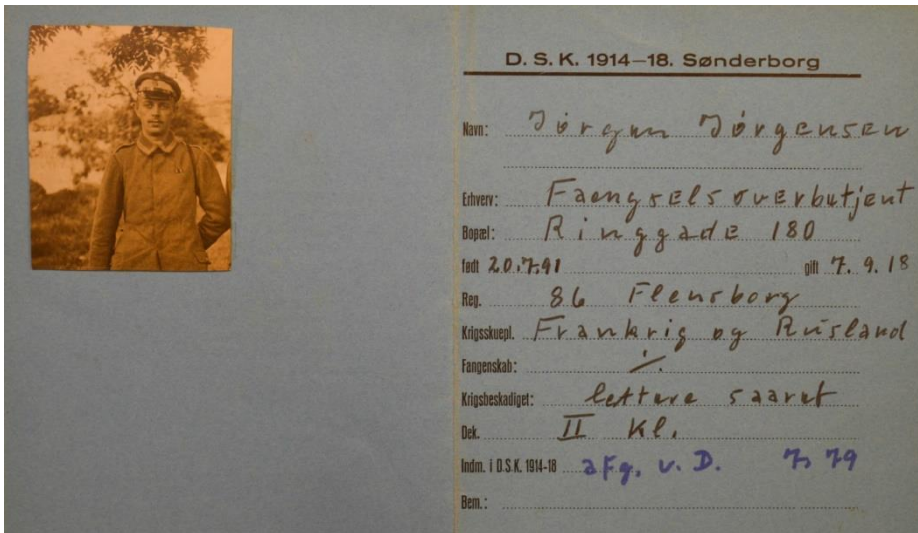 D. S. K. 1914–18. Sønderborg
Navn: Jørgen Jørgensen
Erhverv: Faengselsoverbutjent
Bopæl: Ringgade 180
født 20.7.91 gift 7. 9. 18
Reg. 86 Flensborg
Krigsskuepl. Frankrig og Rusland
Fangenskab: ./.
Krigsbeskadiget: lettere saaret
Dek. II Kl.
Indm. i D.S.K. 1914-18 afg. v. D. 7. 79
Bem.: